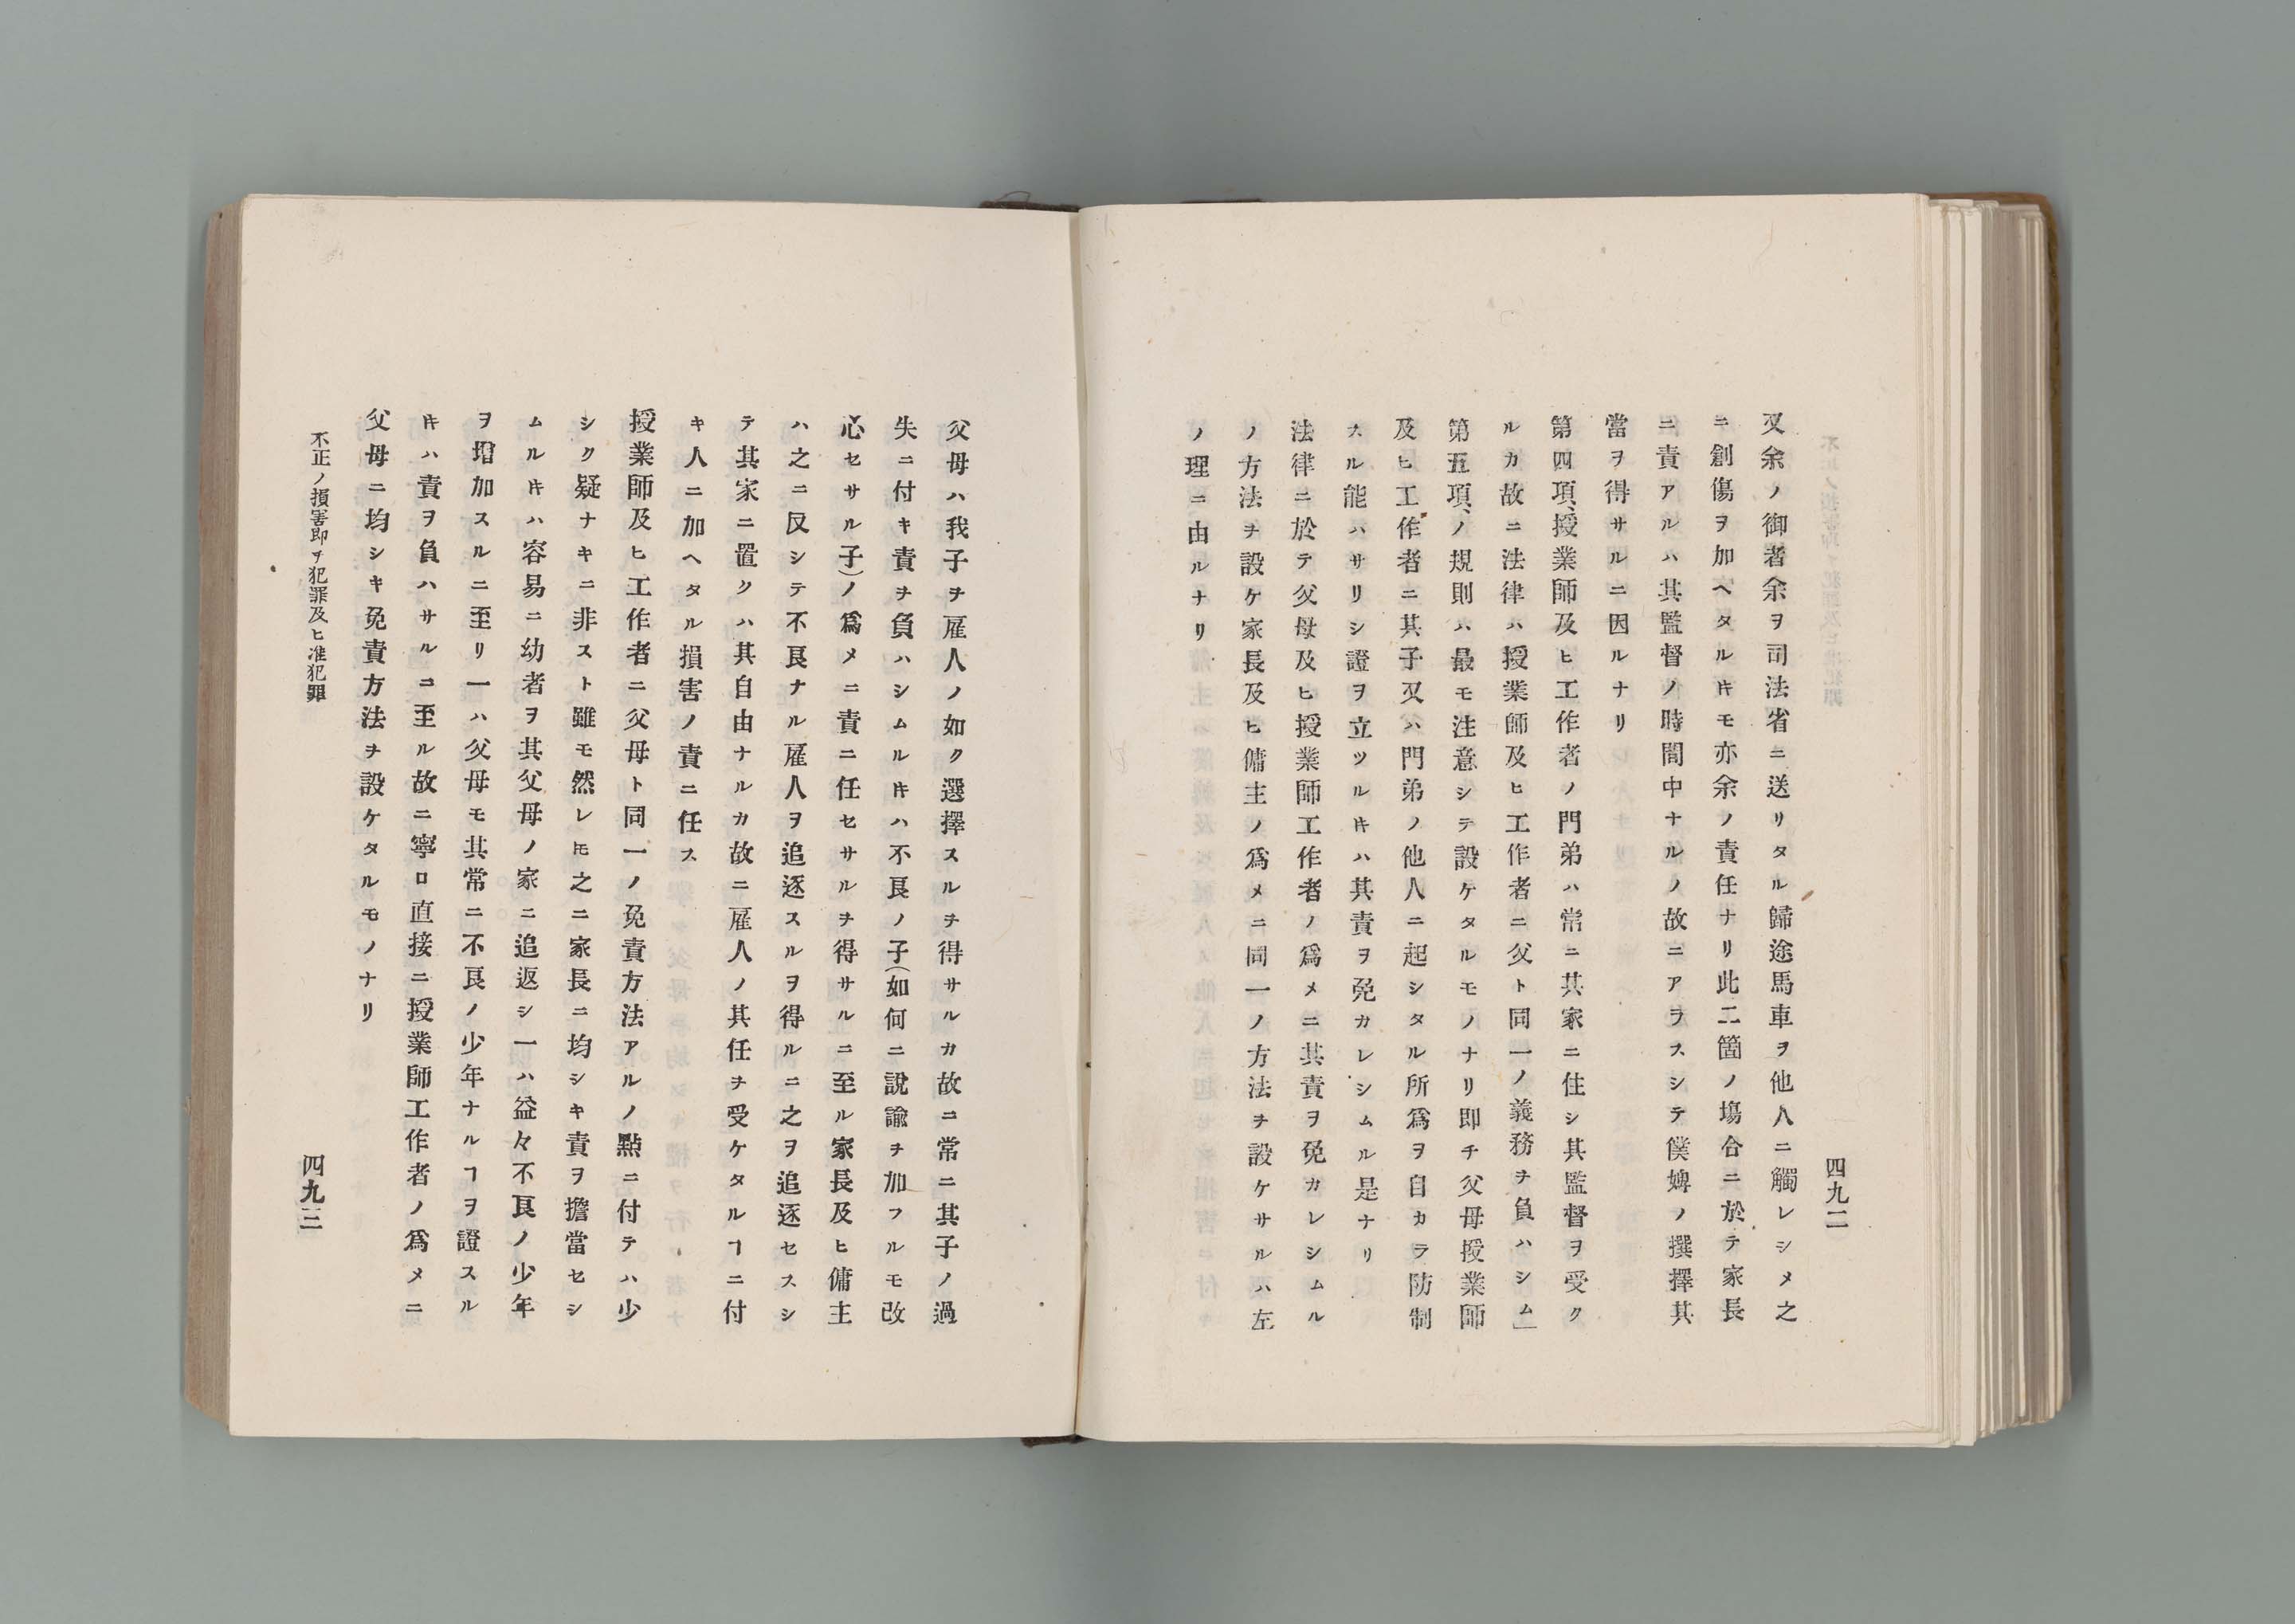 四九二
又余ノ御者余ヲ司法省ニ送リタル歸途馬車ヲ他人ニ觸レシメ之
ニ創傷ヲ加ヘタルキモ亦余ノ責任ナリ此二箇ノ塲合ニ於テ家長
ニ責アルハ其監督ノ時間中ナルノ故ニアラスシテ僕婢ノ撰擇其
當ヲ得サルニ因ルナリ
第四項、授業師及ヒ工作者ノ門弟ハ常ニ其家ニ住シ其監督ヲ受ク
ルカ故ニ法律ハ授業師及ヒ工作者ニ父ト同一ノ義務ヲ負ハシム」
第五項、ノ規則ハ最モ注意シテ設ケタルモノナリ即チ父母授業師
及ヒ工作者ニ其子又ハ門弟ノ他人ニ起シタル所爲ヲ自カラ防制
スル能ハサリシ證ヲ立ツルキハ其責ヲ免カレシムル是ナリ
法律ニ於テ父母及ヒ授業師工作者ノ爲メニ其責ヲ免カレシムル
ノ方法ヲ設ケ家長及ヒ傭主ノ爲メニ同一ノ方法ヲ設ケサルハ左
ノ理ニ由ルナリ
父母ハ我子ヲ雇人ノ如ク選擇スルヲ得サルカ故ニ常ニ其子ノ過
失ニ付キ責ヲ負ハシムルキハ不良ノ子(如何ニ說諭ヲ加フルモ改
心セサル子)ノ爲メニ責ニ任セサルヲ得サルニ至ル家長及ヒ傭主
ハ之ニ反シテ不良ナル雇人ヲ追逐スルヲ得ルニ之ヲ追逐セスシ
テ其家ニ置クハ其自由ナルカ故ニ雇人ノ其任ヲ受ケタルヿニ付
キ人ニ加ヘタル損害ノ責ニ任ス
授業師及ヒ工作者ニ父母ト同一ノ免責方法アルノ點ニ付テハ少
シク疑ナキニ非スト雖モ然レ𪜈之ニ家長ニ均シキ責ヲ擔當セシ
ムルキハ容易ニ幼者ヲ其父母ノ家ニ追返シ一ハ益々不良ノ少年
ヲ增加スルニ至リ一ハ父母モ其常ニ不良ノ少年ナルヿヲ證スル
キハ責ヲ負ハサルニ至ル故ニ寧ロ直接ニ授業師工作者ノ爲メニ
父母ニ均シキ免責方法ヲ設ケタルモノナリ
不正ノ損害即チ犯罪及ヒ准犯罪
四九三